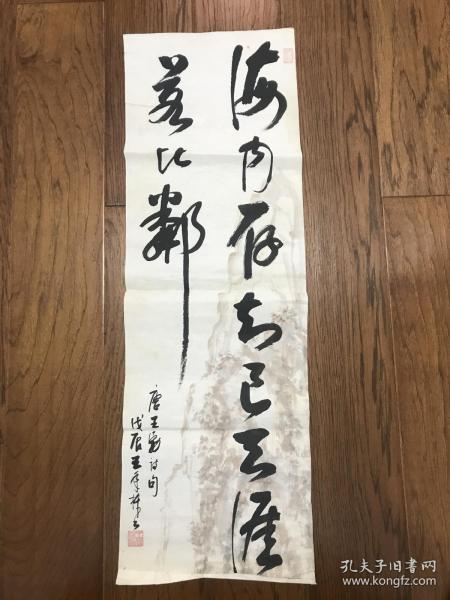 海内存知己天涯
若比鄰
唐王勃诗句
戊辰王
孔夫子旧书网
www.kongfz.com